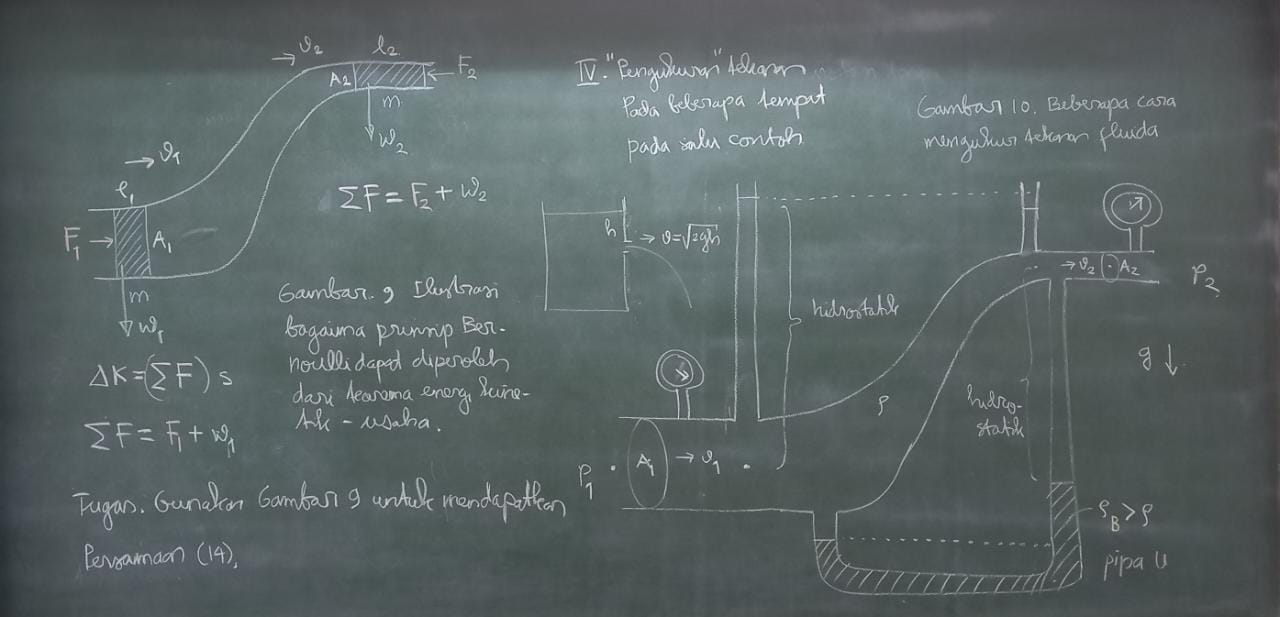 → v₂
l₂
A₂
← F₂
m
w₂
→ v₁
l₁
F₁ →
A₁
m
w₁
ΣF = F₂ + w₂
Gambar. 9 Ilustrasi
bagaima prinsip Ber-
noulli dapat diperoleh
dari teorema energi kine-
tik - usaha.
ΔK = (ΣF) s
ΣF = F₁ + w₁
Tugas. Gunakan Gambar 9 untuk mendapatkan
Persamaan (14).
IV. "Pengukuran" tekanan
Pada beberapa tempat
pada satu contoh
Gambar 10. Beberapa cara
mengukur tekanan fluida
h
→ v=√2gh
hidrostatik
→ v₂
A₂
P₂
g ↓
ρ
hidro-
statik
P₁
A₁
→ v₁
ρ_B > ρ
pipa U